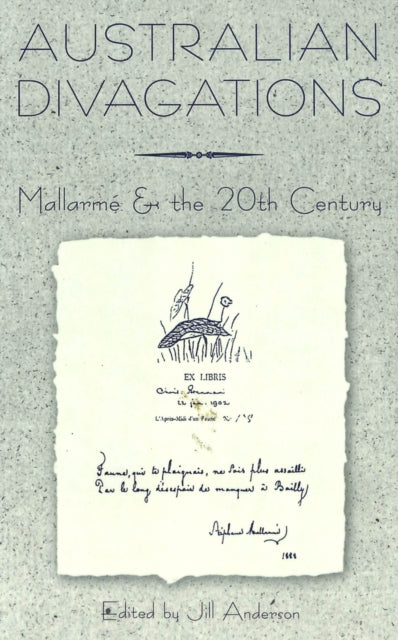 AUSTRALIAN
DIVAGATIONS
Mallarmé & the 20th Century
EX LIBRIS
22 jan. 1902
L'Après-Midi d'un Faune No
Faune, qui te plaignais, ne sois plus assailli
Par le long désespoir de manquer à Bailly
Stéphane Mallarmé
Edited by Jill Anderson